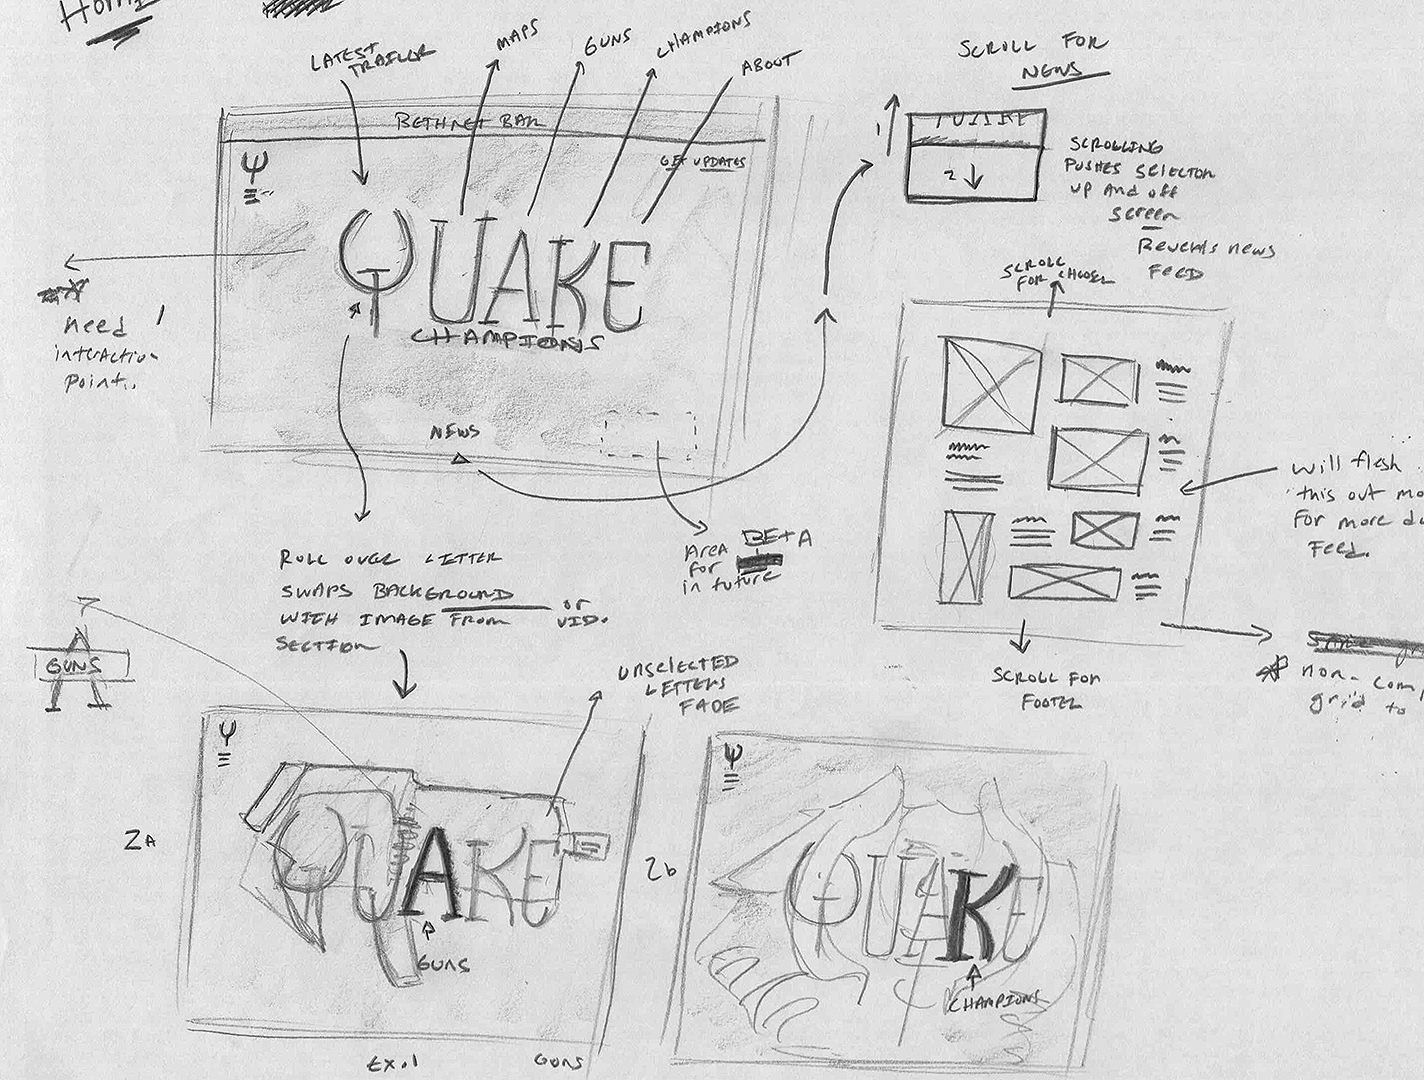 Home
LATEST
TRAILER
MAPS
GUNS
CHAMPIONS
ABOUT
BETHNET BAR
GET UPDATES
QUAKE
CHAMPIONS
NEWS
need
interaction
point..
SCROLL FOR
NEWS
1
QUAKE
2
SCROLLING
PUSHES SELECTOR
UP AND OFF
SCREEN
Reveals news
FEED
SCROLL
FOR
will flesh
this out mo
For more d
Feed.
SCROLL FOR
FOOTER
non-comp
grid to
AREA BETA
FOR
in future
ROLL OVER LETTER
SWAPS BACKGROUND
WITH IMAGE FROM or VID.
SECTION
GUNS
UNSELECTED
LETTERS
FADE
2A
QUAKE
GUNS
EX.1
GUNS
2b
QUAKE
CHAMPIONS